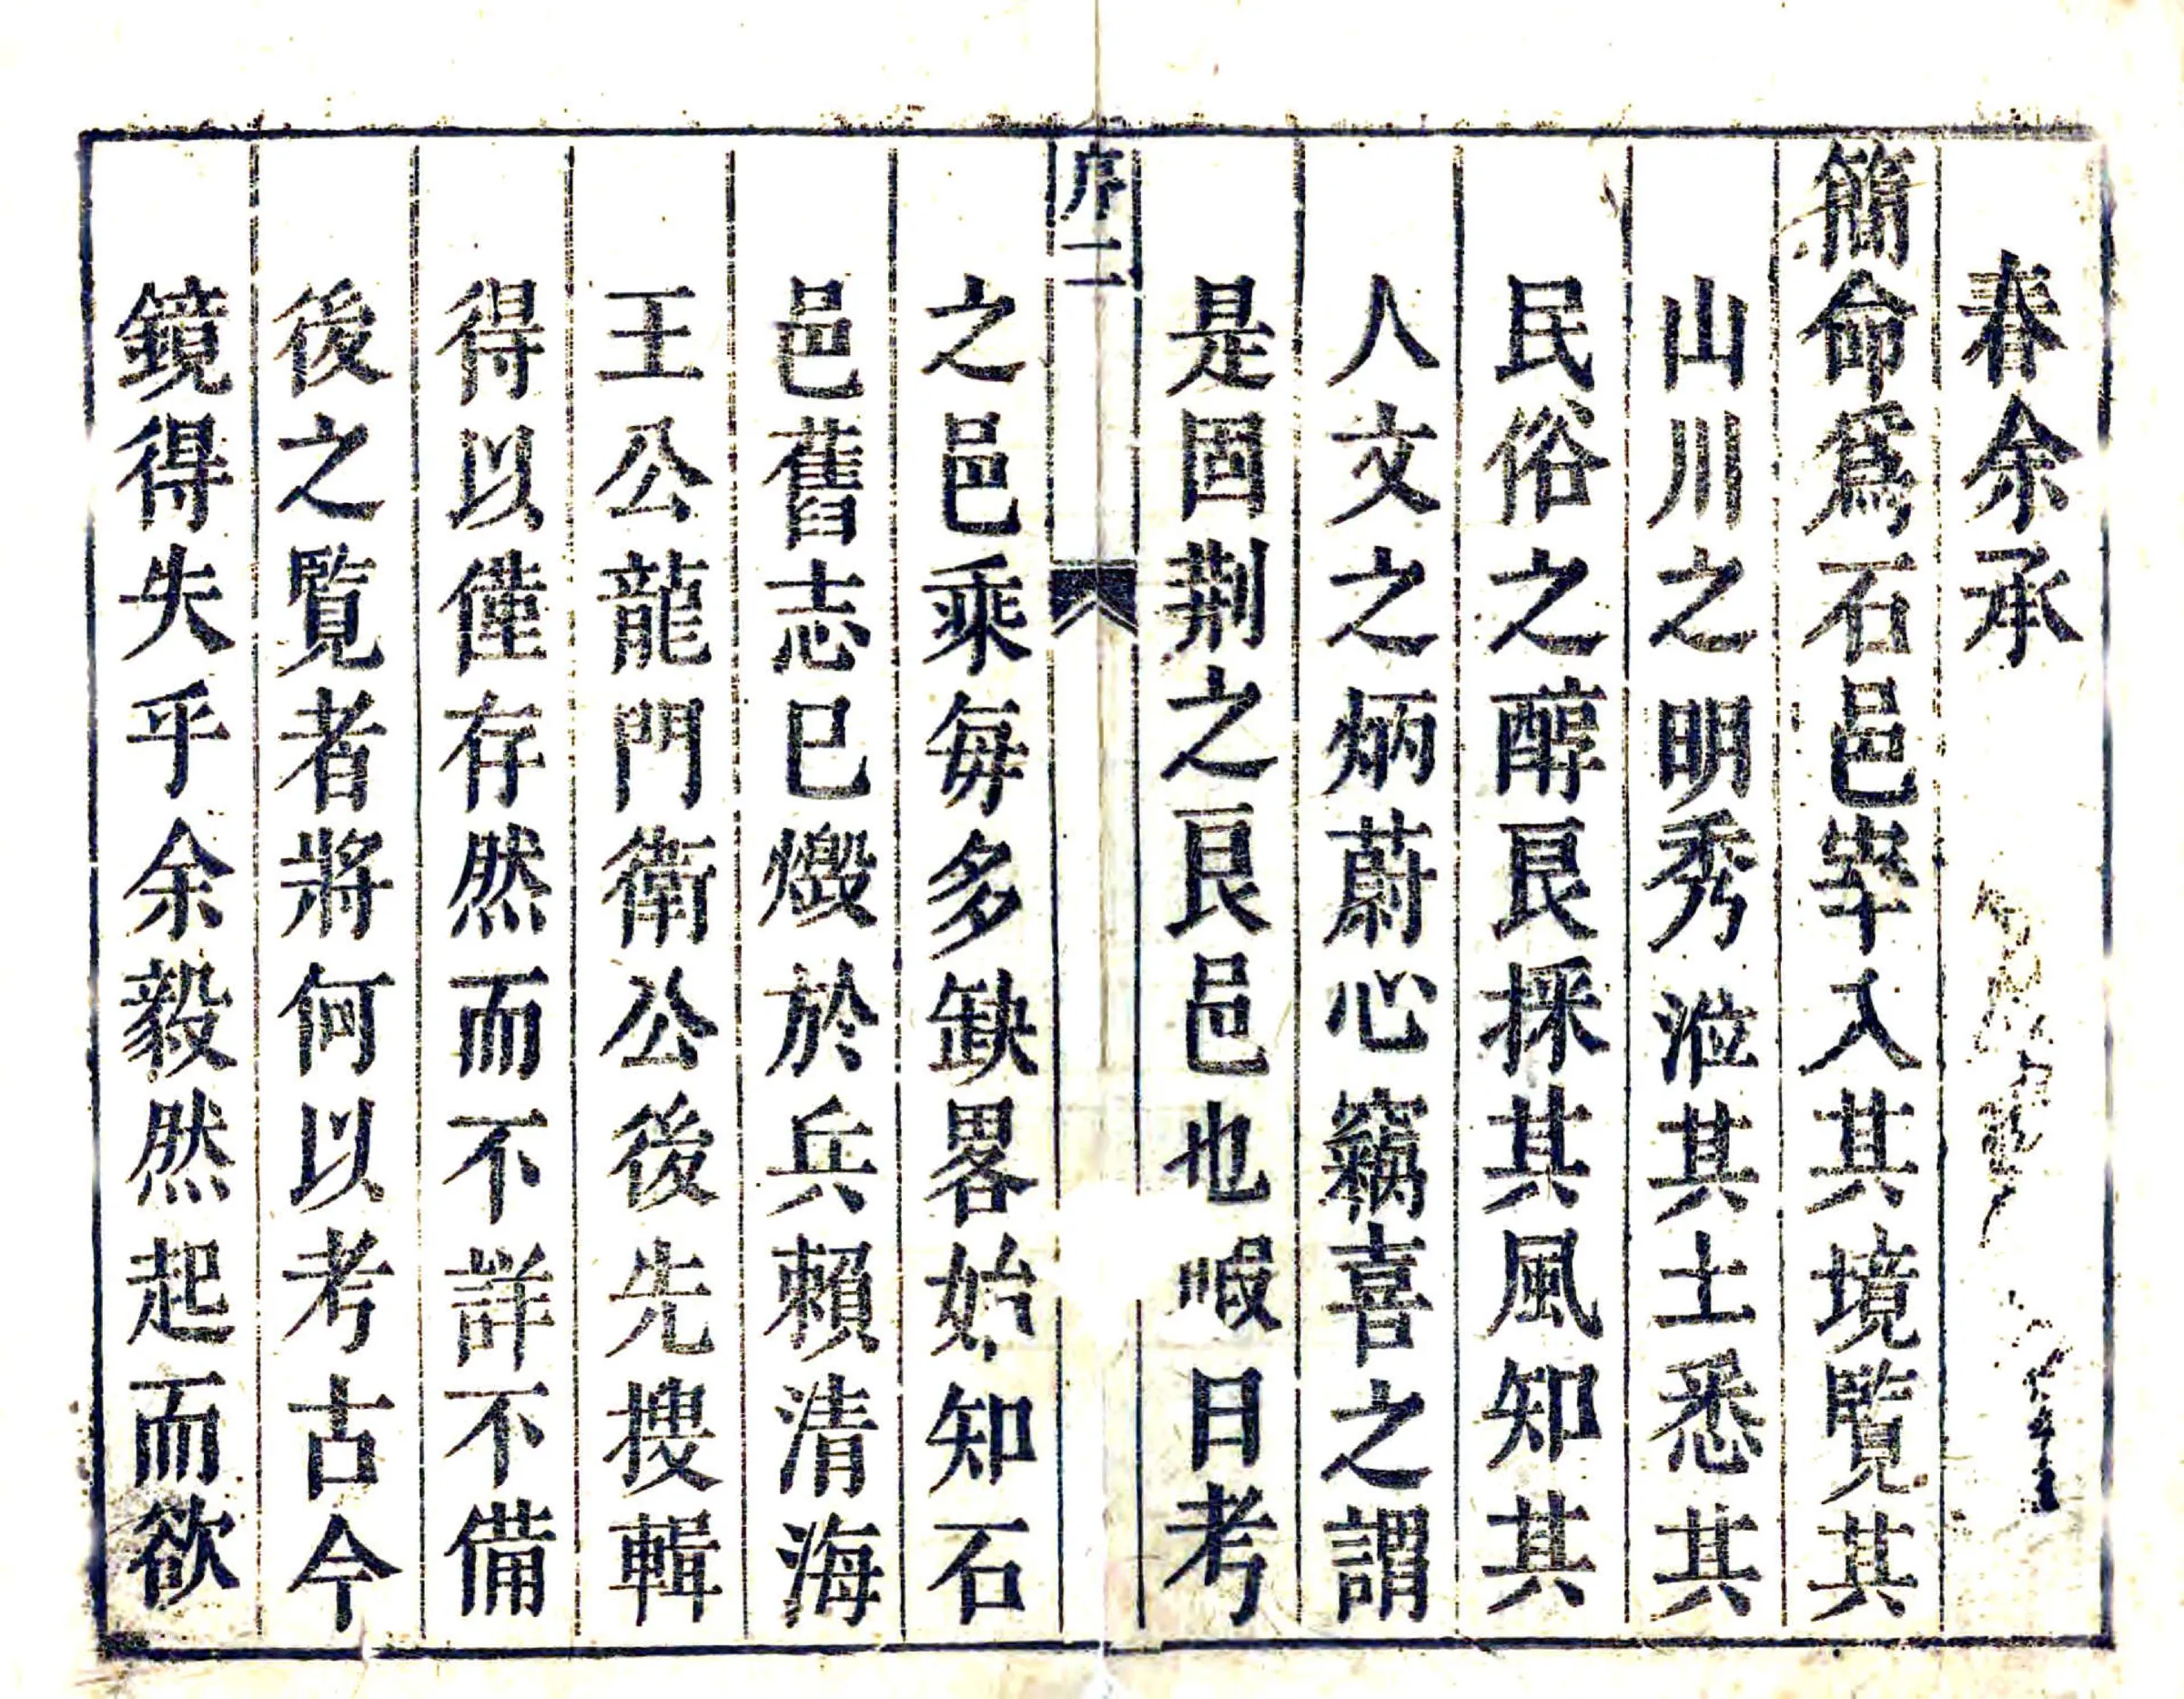 春余承
簡命爲石邑宰入其境覽其
山川之明秀涖其土悉其
民俗之醇良採其風知其
人文之炳蔚心竊喜之謂
是固荆之良邑也暇日考
序二
之邑乘每多缺畧始知石
邑舊志已燬於兵賴清海
王公龍門衛公後先搜輯
得以僅存然而不詳不備
後之覽者將何以考古今
鏡得失乎余毅然起而欲